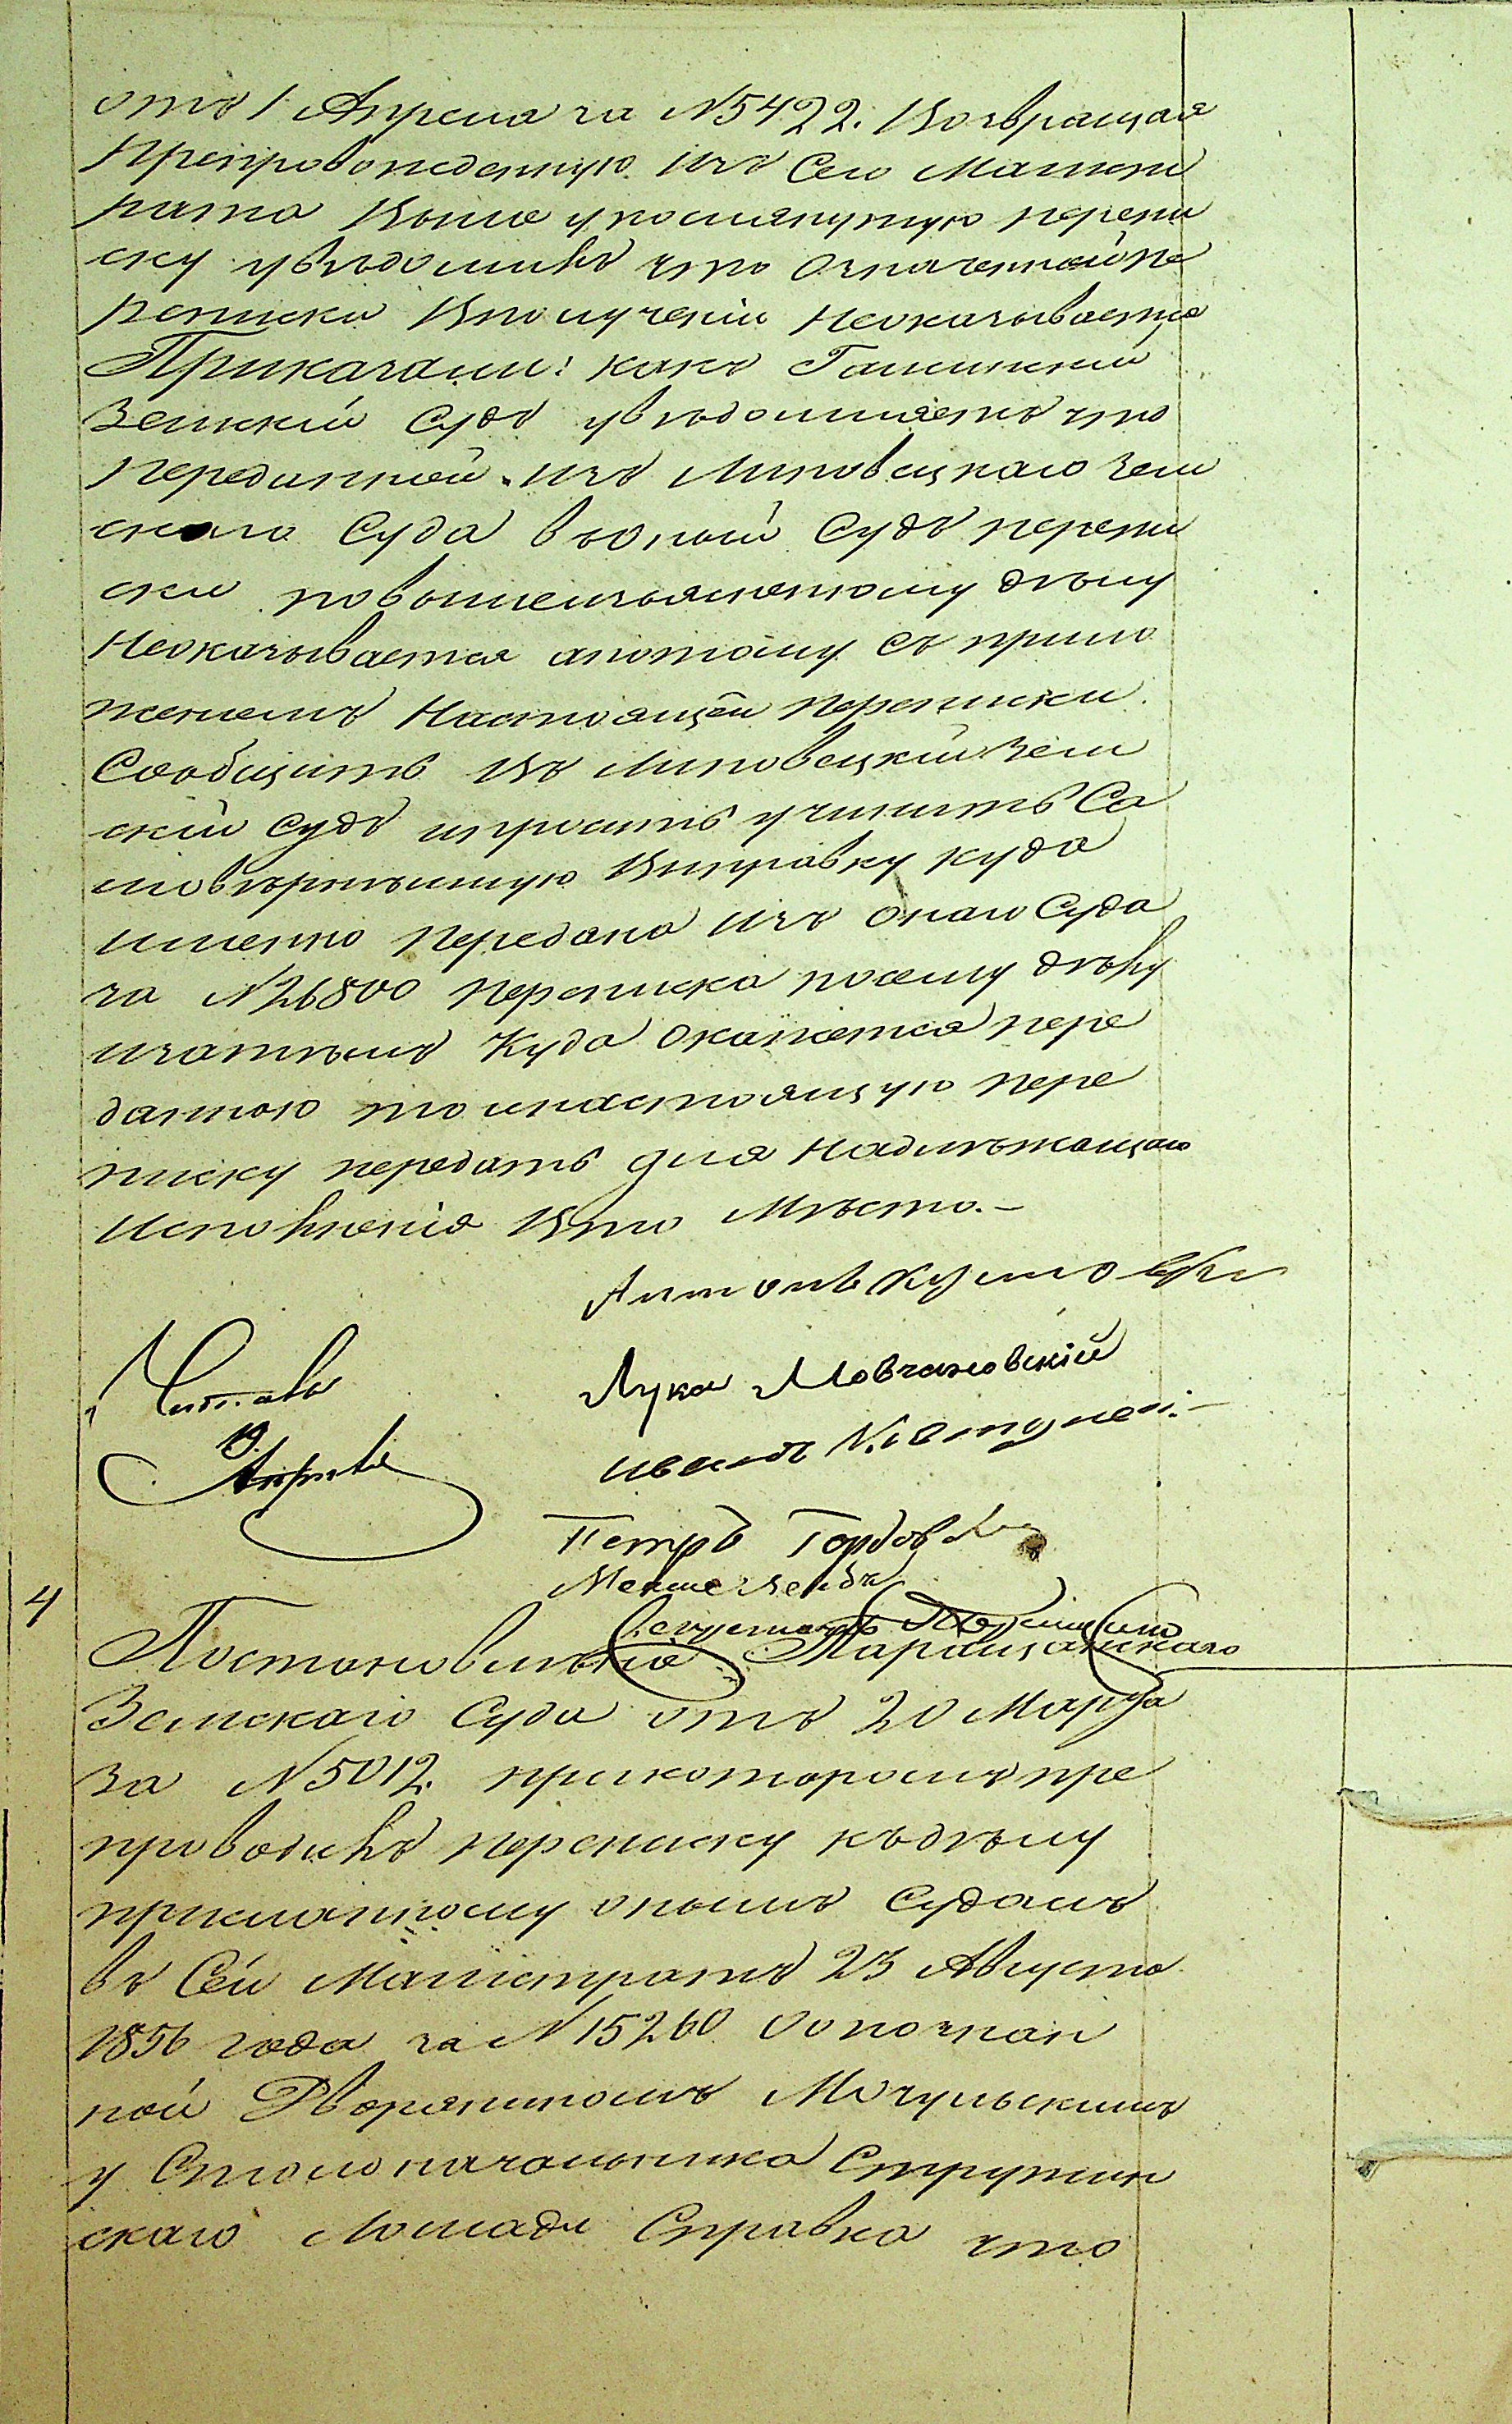 отъ 1 Апреля за N5422. Возвращая
препровожденную изъ Сего Магист
рата выше упомянутую перепи
ску увѣдомилъ что означенной пе
реписки вполученіи неоказывается
Приказали: какъ Гайсинскій
Земскій Судъ увѣдомляетъ что
переданной изъ Липовецкаго Зем
скаго Суда въоный Судъ перепи
ски повышеизъясненному дѣлу
неоказывается апотому съ прило
женіемъ настоящей переписки
Сообщить въ Липовецкій Зем
скій Судъ ипросить учинить Са
мовѣрнѣйшую выправку куда
именно передана изъ онаго Суда
за N26800 переписка посему дѣлу
изатѣмъ куда окажется пере
данною то инастоящую пере
писку передать для надлѣжащаго
исполненія вто мѣсто.-
Антонъ
Лука Мовчановскій
Иванъ
Петръ
4
Постановленіе Таращанскаго
Земскаго Суда отъ 20 Марта
за N5012. прикоторомъ пре
проводилъ переписку къдѣлу
присланному онымъ Судомъ
въ Сей Магистратъ 23 Августа
1856 года за N15260 Оопознан
ной Дворяниномъ Мочульскимъ
у Столоначальника Струтин
скаго Лошади Справка что